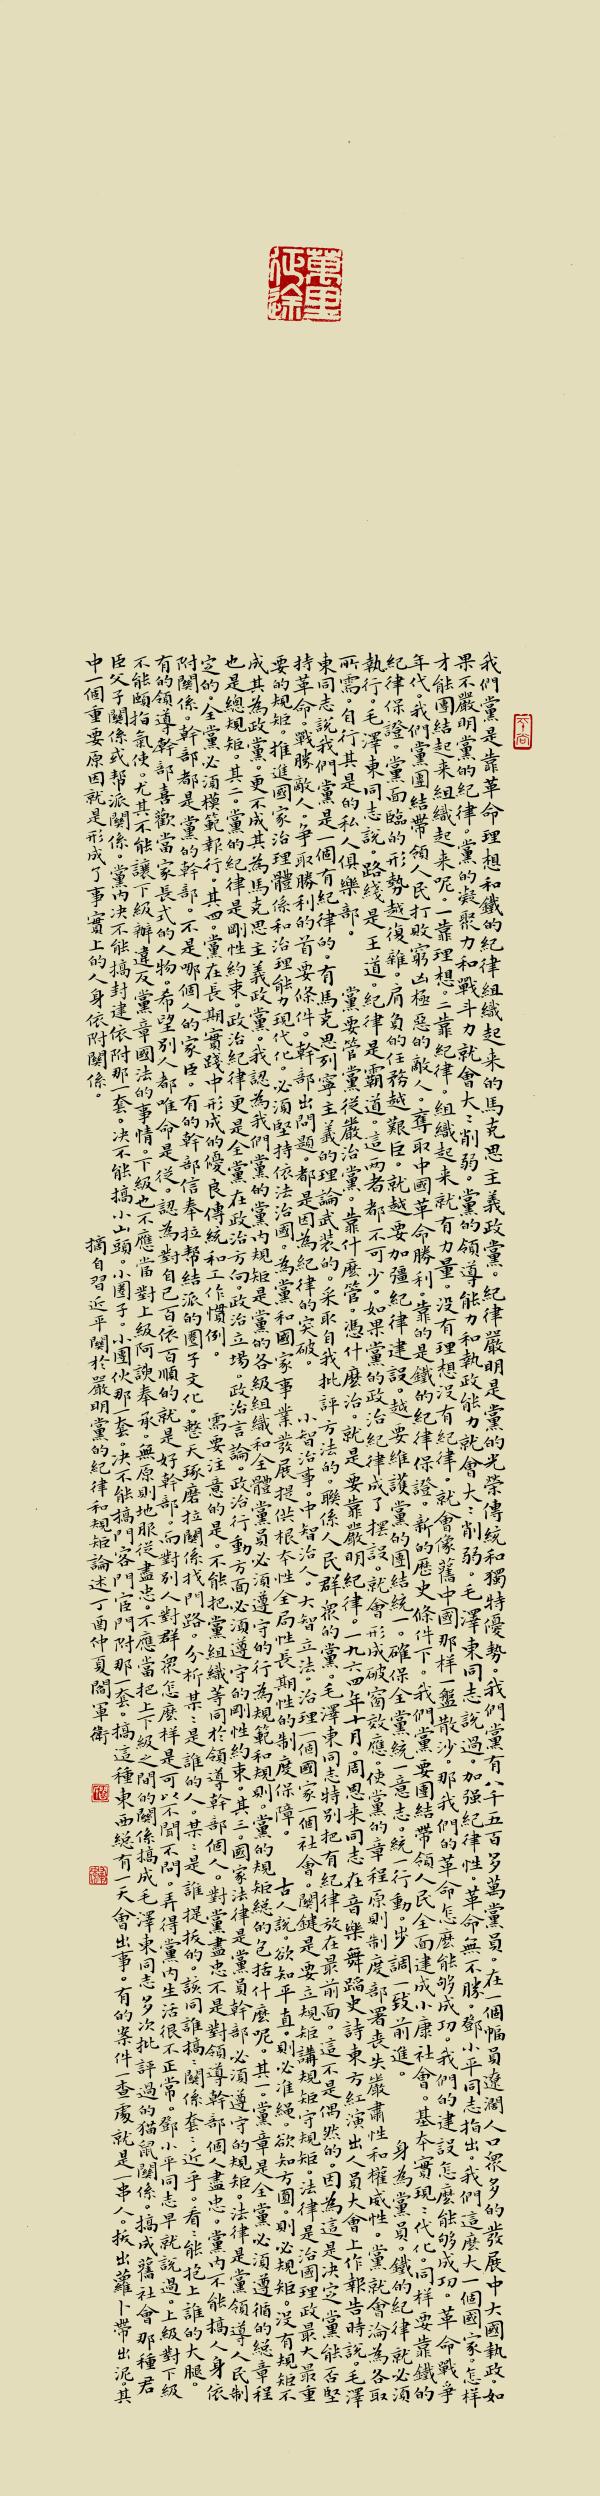 萬里征途
我們黨是靠革命理想和鐵的紀律組織起来的馬克思主義政黨。紀律嚴明是黨的光榮傳統和獨特優勢。我們黨有八千五百多萬黨員。在一個幅員遼濶人口衆多的發展中大國執政。如
果不嚴明黨的紀律。黨的凝聚力和戰斗力就會大:削弱。黨的領導能力和執政能力就會大:削弱。毛澤東同志說過。加强紀律性。革命無不勝。鄧小平同志指出。我們這麼大一個國家。怎样
才能團結起来組織起来呢。一靠理想。二靠紀律。組織起来就有力量。没有理想没有紀律。就會像舊中國那样一盤散沙。那我們的革命怎麼能够成功。我們的建設怎麼能够成功。革命戰争
年代。我們黨團結帶領人民打敗窮凶極惡的敵人。奪取中國革命勝利。靠的是鐵的紀律保證。新的歷史條件下。我們黨要團結帶領人民全面建成小康社會。基本實現:代化。同样要靠鐵的
紀律保證。黨面臨的形勢越復雜。肩負的任務越艱巨。就越要加彊紀律建設。越要維護黨的團結統一。確保全黨統一意志。統一行動。步調一致前進。 身為黨員。鐵的紀律就必須
執行。毛澤東同志說。路綫是王道。紀律是霸道。這两者都不可少。如果黨的政治紀律成了擺設。就會形成破窗效應。使黨的章程原則制度部署丧失嚴肅性和權威性。黨就會淪為各取
所需。自行其是的私人俱樂部。 黨要管黨從嚴治黨。靠什麼管。憑什麼治。就是要靠嚴明紀律。一九六四年十月。周恩来同志在音樂舞蹈史詩東方紅演出人員大會上作報告時說。毛澤
東同志說我們黨是一個有紀律的。有馬克思列寧主義的理論武装的。采取自我批評方法的。聯係人民群衆的黨。毛澤東同志特别把有紀律放在最前面。這不是偶然的。因為這是决定黨能否堅
持革命。戰勝敵人。争取勝利的首要條件。幹部出問題。都是因為紀律的突破。 小智治事。中智治人。大智立法。治理一個國家一個社會。関鍵是要立規矩講規矩守規矩。法律是治國理政最大最重
要的規矩。推進國家治理體係和治理能力現代化。必須堅持依法治國。為黨和國家事業發展提供根本性全局性長期性的制度保障。 古人說。欲知平直。則必准繩。欲知方圆。則必規矩。没有規矩不
成其為政黨。更不成其為馬克思主義政黨。我認為我們黨的黨内規矩是黨的各級組織和全體黨員必須遵守的行為規範和規則。黨的規矩總的包括什麼呢。其一。黨章是全黨必須遵循的總章程
也是總規矩。其二。黨的紀律是剛性約束。政治紀律更是全黨在政治方向。政治立場。政治言論。政治行動方面必須遵守的剛性約束。其三。國家法律是黨員幹部必須遵守的規矩。法律是黨領導人民制
定的。全黨必須模範執行。其四。黨在長期實踐中形成的優良傳統和工作慣例。 需要注意的是。不能把黨組織等同於領導幹部個人。對黨盡忠不是對領導幹部個人盡忠。黨内不能搞人身依
附關係。幹部都是黨的幹部。不是哪個人的家臣。有的幹部信奉拉帮結派的圈子文化。整天琢磨拉關係找門路。分析某:是誰的人。某:是誰提拔的。該同誰搞:關係套:近乎。看:能抱上誰的大腿。
有的領導幹部喜歡當家長式的人物。希望别人都唯命是從。認為對自己百依百順的就是好幹部。而對别人對群衆怎麼样是可以不聞不問。弄得黨内生活很不正常。鄧小平同志早就說過。上級對下級
不能頤指氣使。尤其不能讓下級辦違反黨章國法的事情。下級也不應當對上級阿諛奉承。無原則地服從盡忠。不應當把上下級之間的關係搞成毛澤東同志多次批評過的猫鼠關係。搞成舊社會那種君
臣父子關係或帮派關係。黨内决不能搞封建依附那一套。决不能搞小山頭。小圈子。小團伙那一套。决不能搞門客門宦門附那一套。搞這種東西總有一天會出事。有的案件一查處就是一串人。拔出蘿卜帶出泥。其
中一個重要原因就是形成了事實上的人身依附關係。 摘自習近平關於嚴明黨的紀律和規矩論述丁酉仲夏閻軍衛